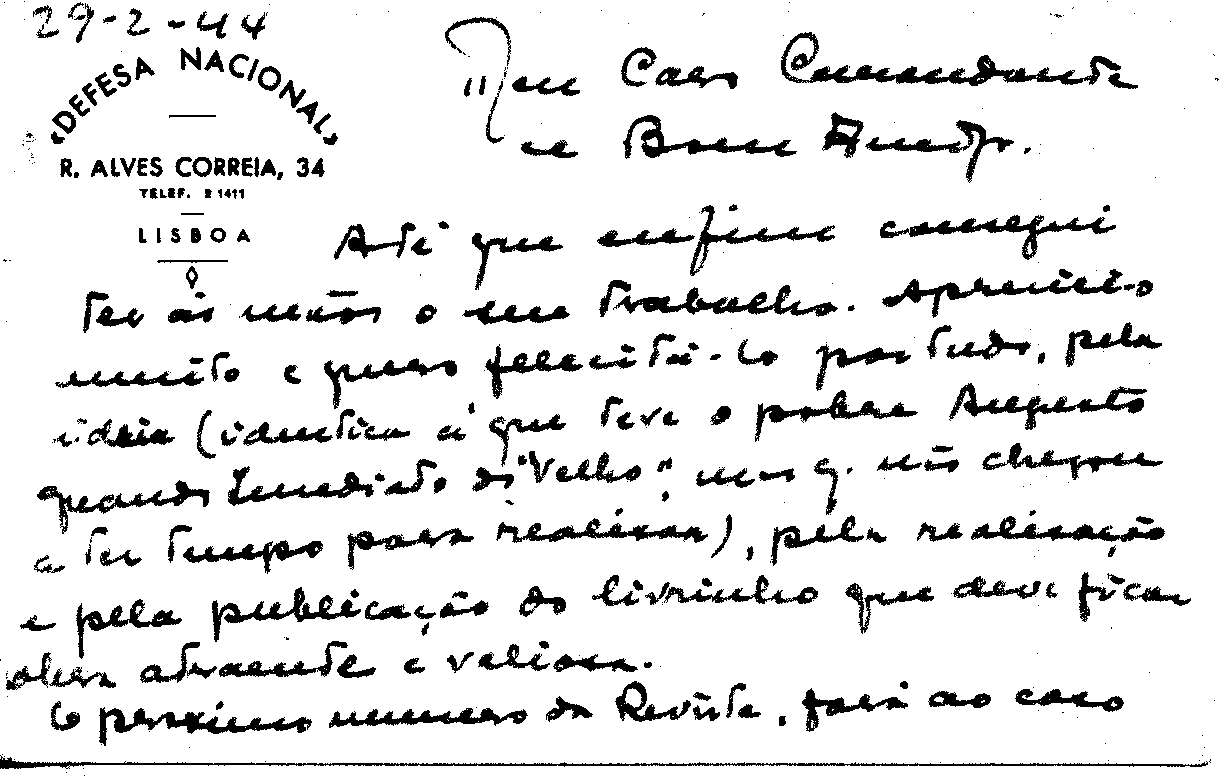 29-2-44
«DEFESA NACIONAL»
R. ALVES CORREIA, 34
TELEF. 2 1411
LISBOA
Meu Caro Comandante
e Bom Amigo.
Até que enfim consegui
ter às mãos o seu trabalho. Apreciei-o
muito e quero felicitá-lo por tudo, pela
idéia (identica á que teve o pobre Augusto
quando Imediato do "Velho", mas q. não chegou
a ter tempo para realisar), pela realisação
e pela publicação do livrinho que deve ficar
obra atraente e valiosa.
O proximo numero da Revista, fará ao caso